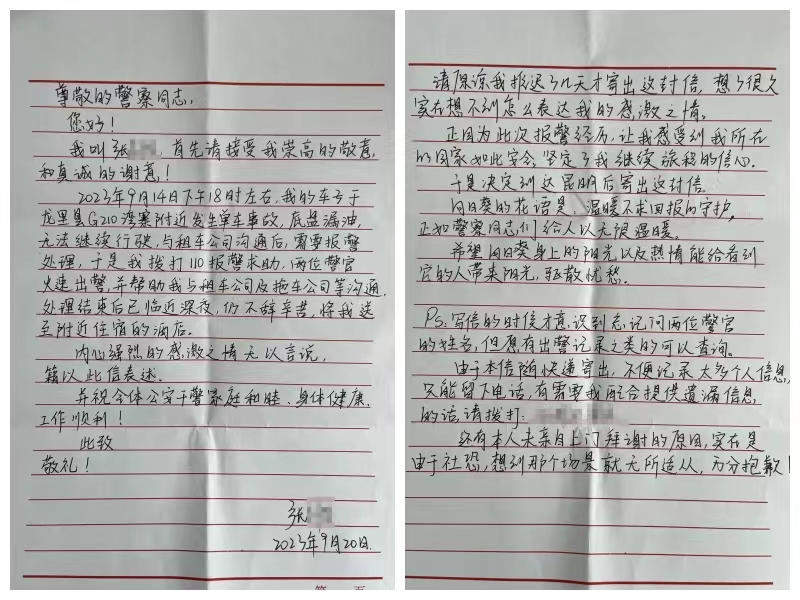 尊敬的警察同志,
您好!
我叫张 ,首先请接受我崇高的敬意,
和真诚的谢意!
2023年9月14日下午18时左右,我的车子于
龙里县G210湾寨附近发生单车事故,底盘漏油,
无法继续行驶,与租车公司沟通后,需要报警
处理,于是我拨打110报警求助,两位警官
火速出警,并帮助我与租车公司及拖车公司等沟通.
处理结束后已临近深夜,仍不辞辛苦,将我送
至附近住宿的酒店.
内心强烈的感激之情无以言说,
籍以此信表述.
并祝全体公安干警家庭和睦、身体健康、
工作顺利!
此致
敬礼!
张
2023年9月20日.
请原谅我推迟了几天才寄出这封信,想了很久
实在想不到怎么表达我的感激之情。
正因为此次报警经历,让我感受到我所在
的国家如此安全,坚定了我继续旅程的信心.
于是决定到达昆明后寄出这封信.
向日葵的花语是,温暖不求回报的守护,
正如警察同志们给人以无限温暖.
希望向日葵身上的阳光以及热情能给看到
它的人带来阳光,驱散忧愁.
Ps:写信的时候才意识到忘记问两位警官
的姓名,但想有出警记录之类的可以查询。
由于本信随快递寄出,不便记录太多个人信息,
只能留下电话,有需要我配合提供遗漏信息
的话,请拨打:
还有本人未亲自上门拜谢的原因,实在是
由于社恐,想到那个场景就无所适从,万分抱歉!
第 页